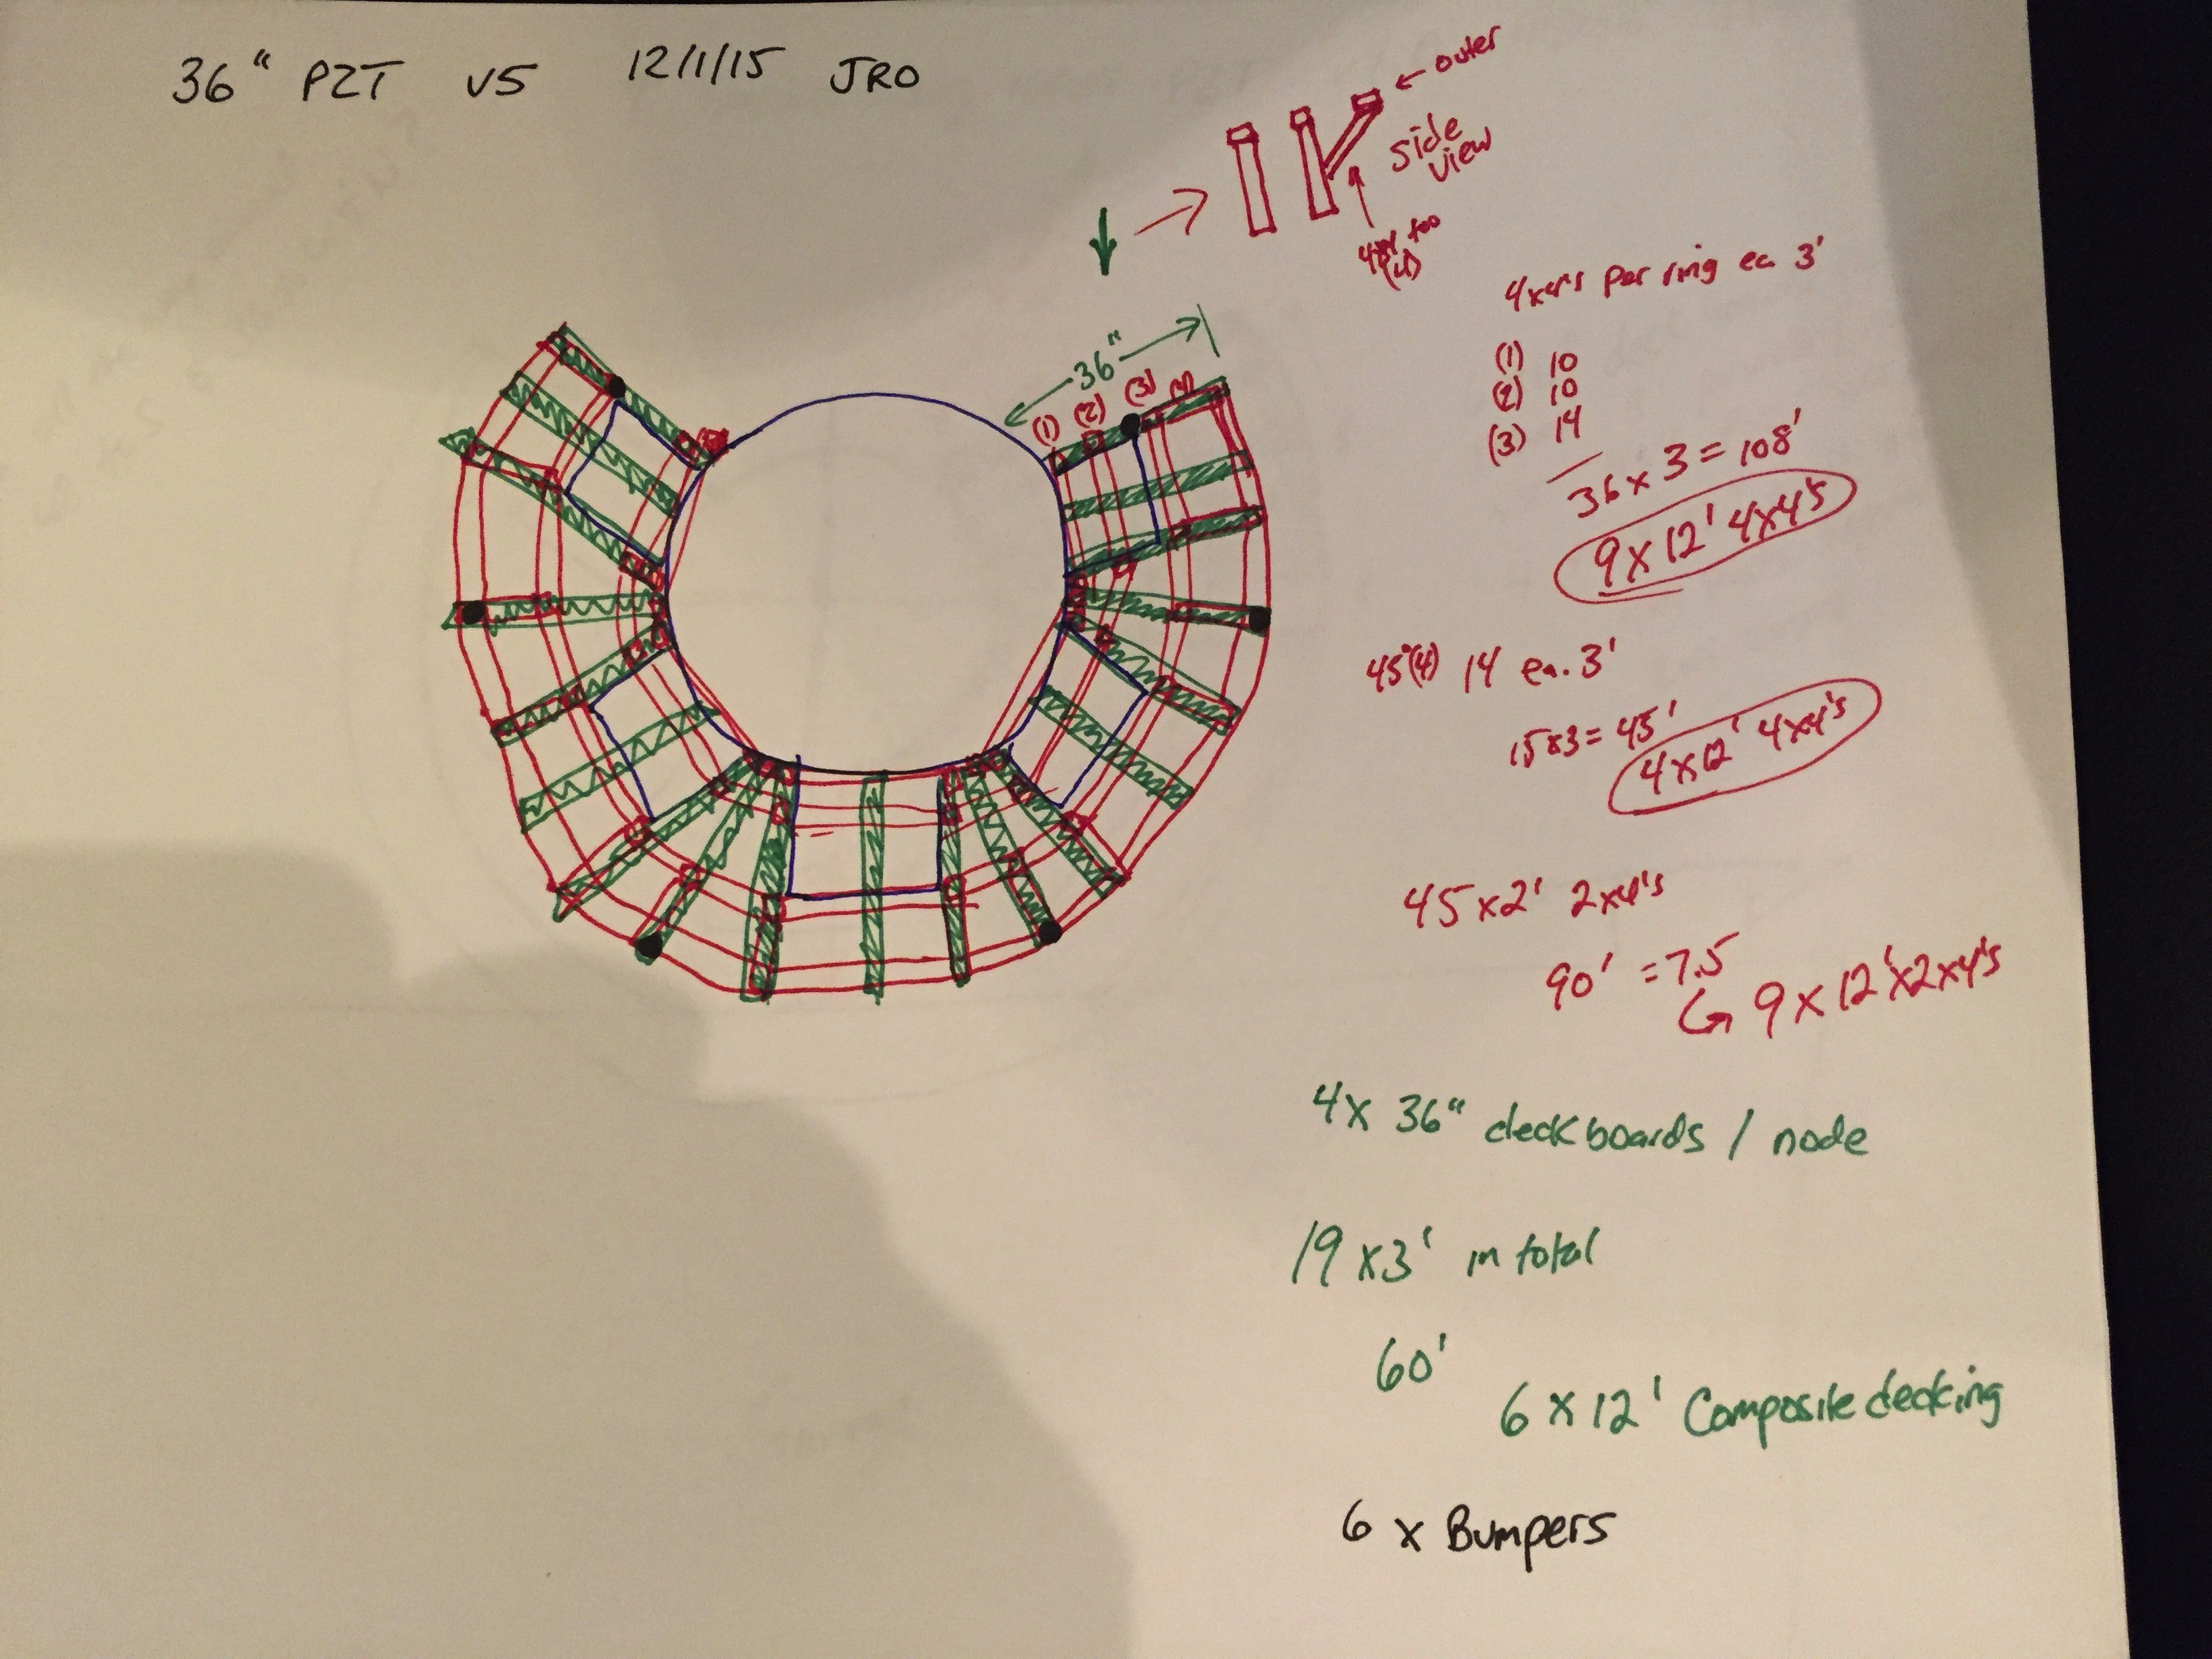 36" PZT V5 12/1/15 JRO
← outer
side
view
4x4 too
(4)
36"
(1) (2) (3) (4)
4x4's per ring ea 3'
(1) 10
(2) 10
(3) 14
36 x 3 = 108'
9 x 12' 4x4's
45°(4) 14 ea. 3'
15x3 = 45'
4x12' 4x4's
45 x 2' 2x4's
90' = 7.5
↳ 9 x 12' x 2x4's
4x 36" deckboards / node
19 x 3' in total
60'
6 x 12' Composite decking
6 x Bumpers